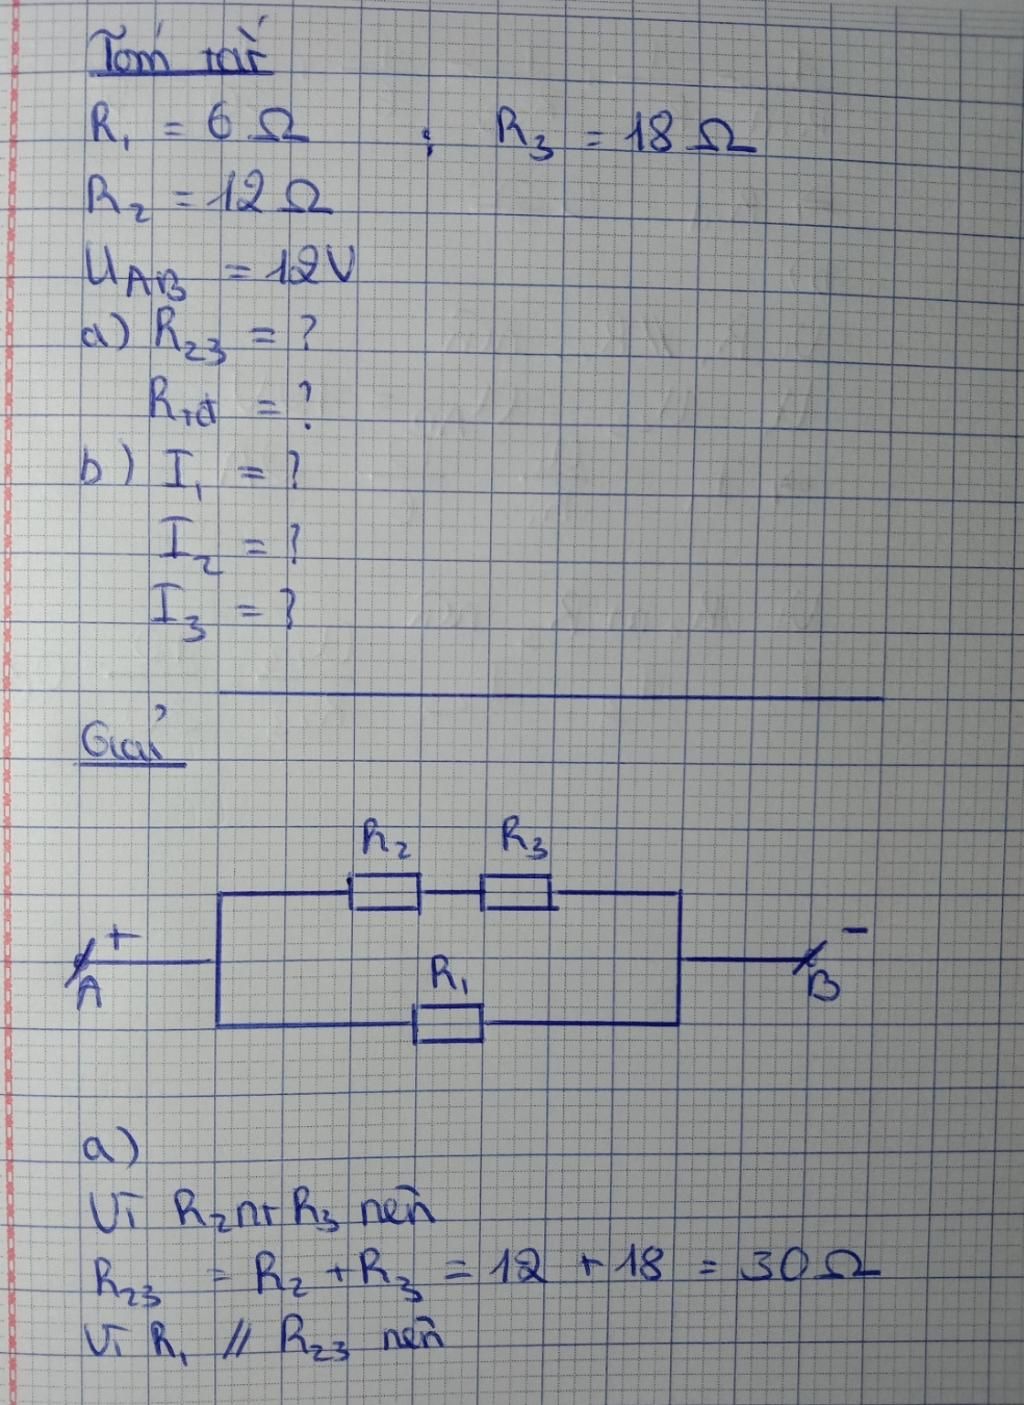 Tóm tắt
R₁ = 6 Ω ; R₃ = 18 Ω
R₂ = 12 Ω
U_AB = 12V
a) R₂₃ = ?
R_tđ = ?
b) I₁ = ?
I₂ = ?
I₃ = ?
Giải
R₂ R₃
+ -
A B
R₁
a)
Vì R₂ nt R₃ nên
R₂₃ = R₂ + R₃ = 12 + 18 = 30 Ω
Vì R₁ // R₂₃ nên